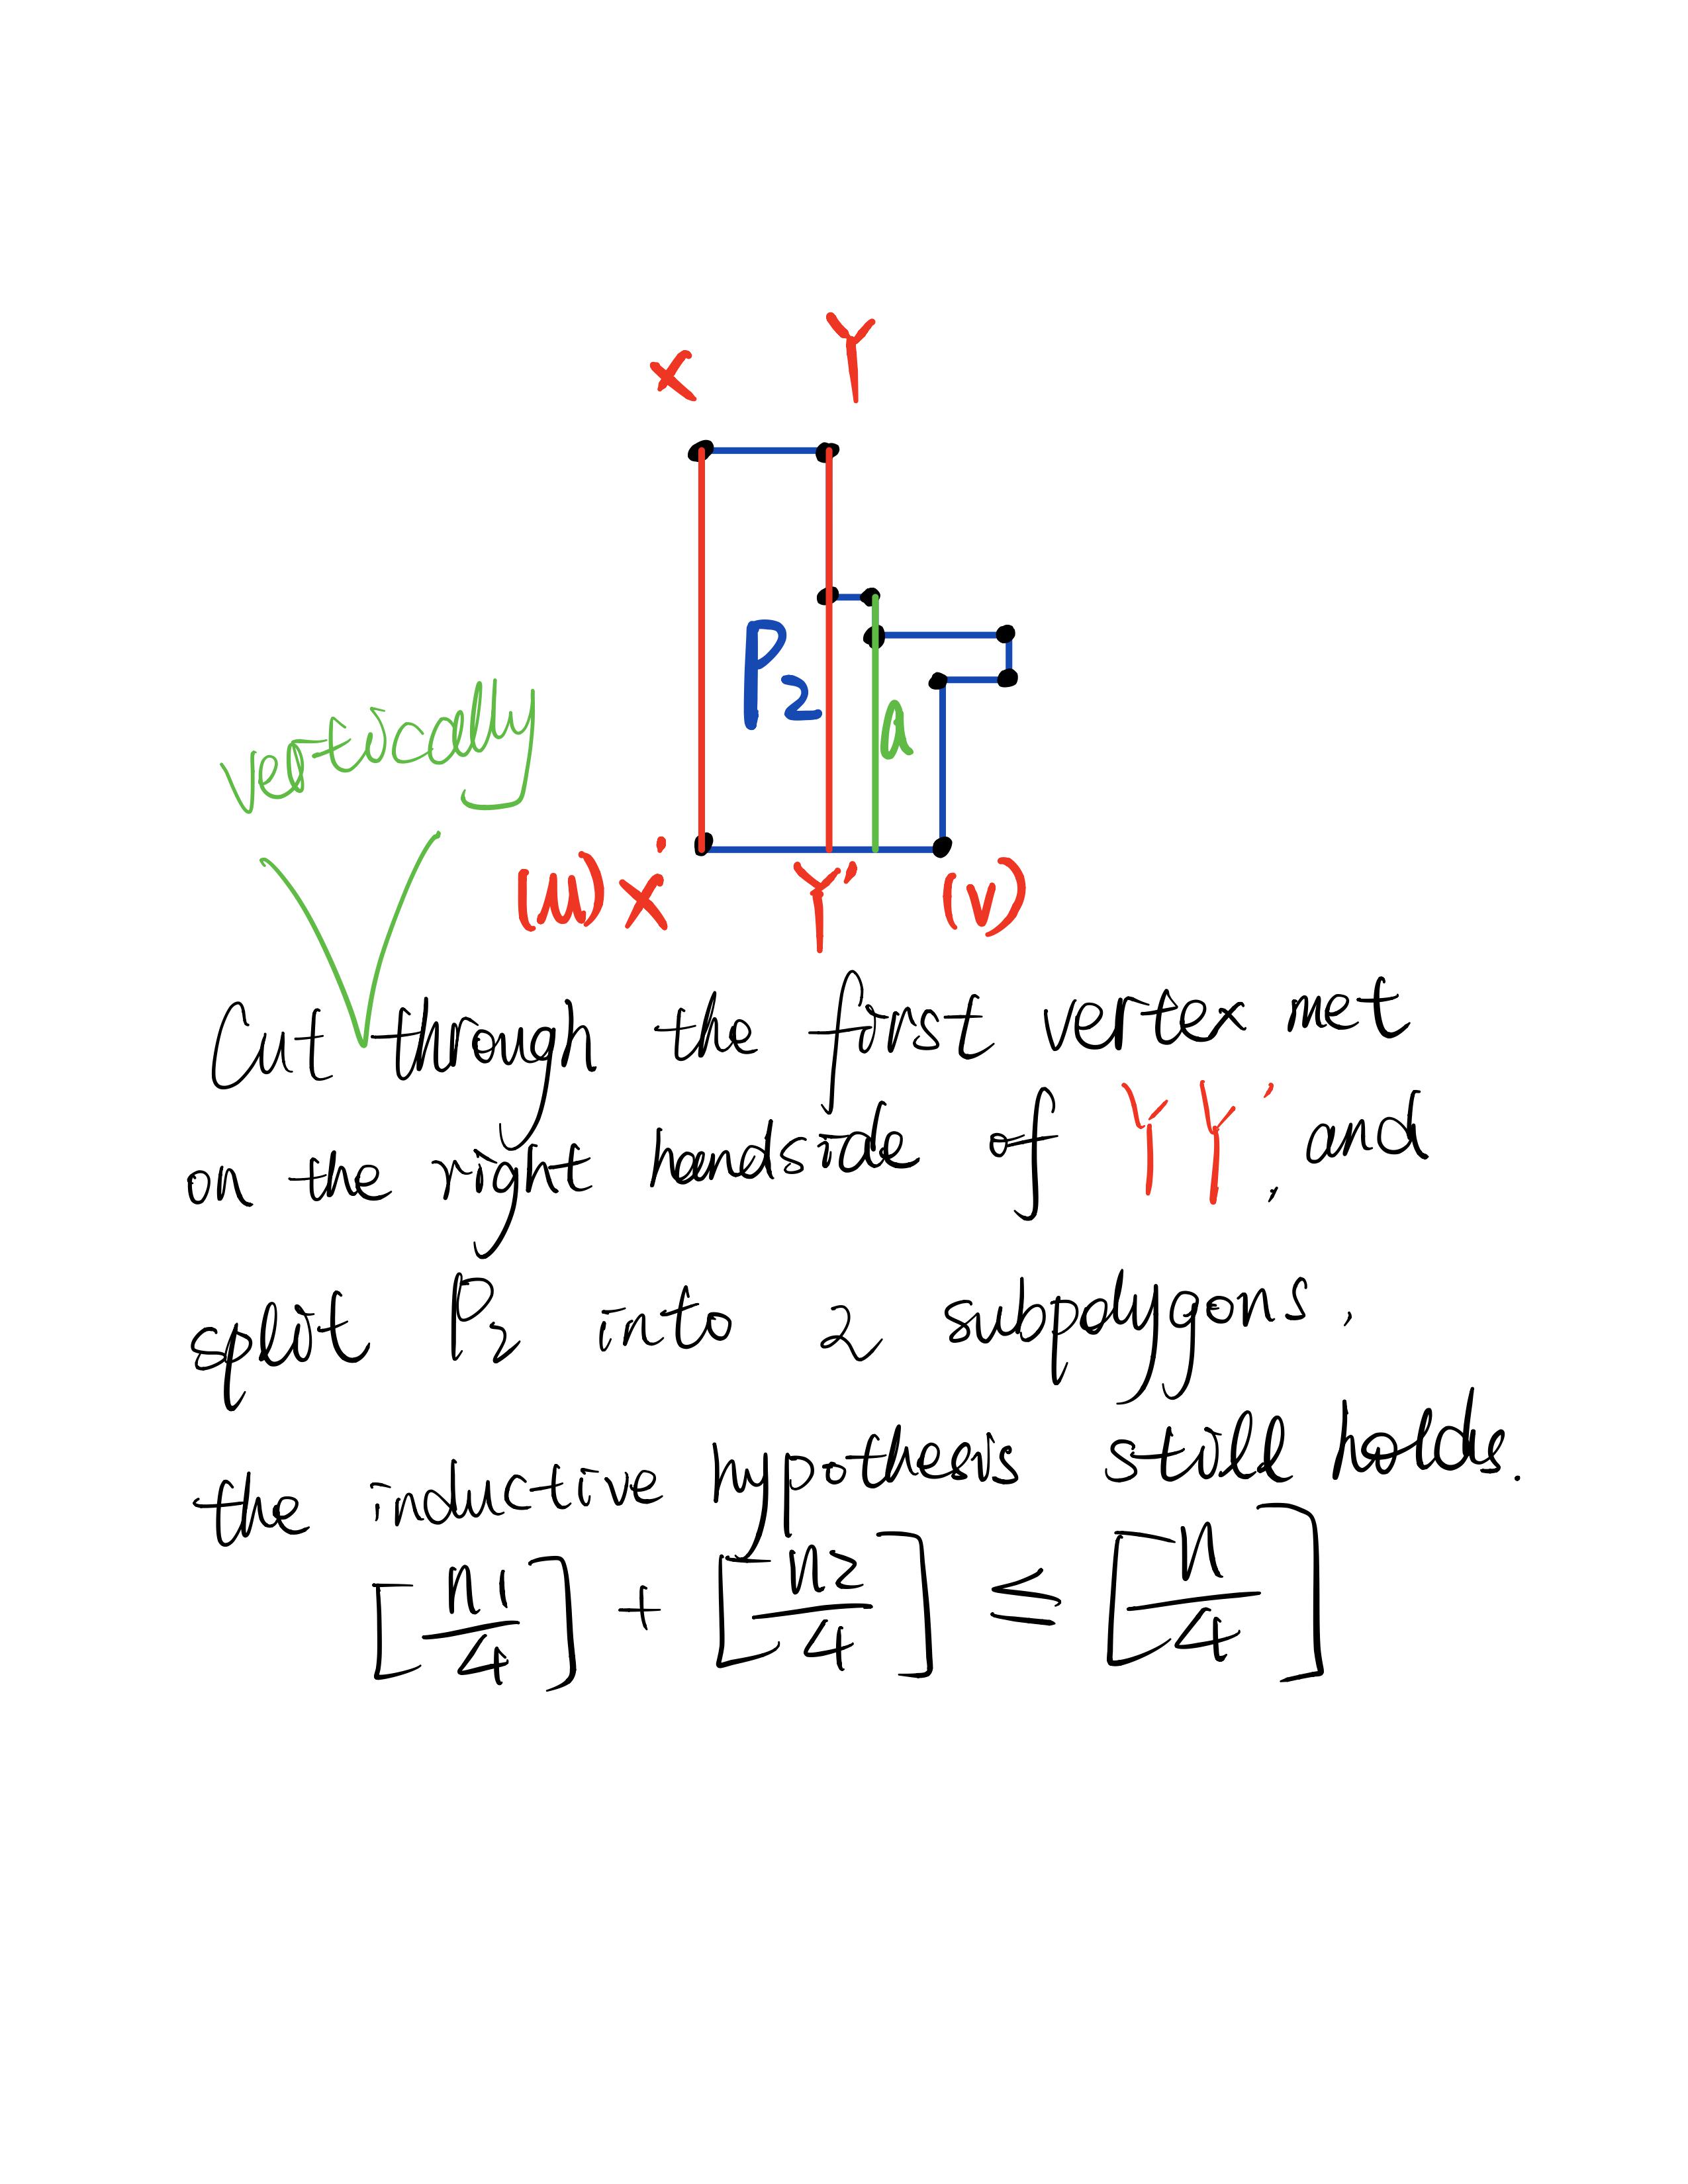 X Y
P2
a
vertically
(u) X' Y' (v)
Cut through the first vertex met
on the right handside of YY', and
split P2 into 2 subpolygons,
the inductive hypothesis still holds.
[n1/4] + [n2/4] ≤ [n/4]